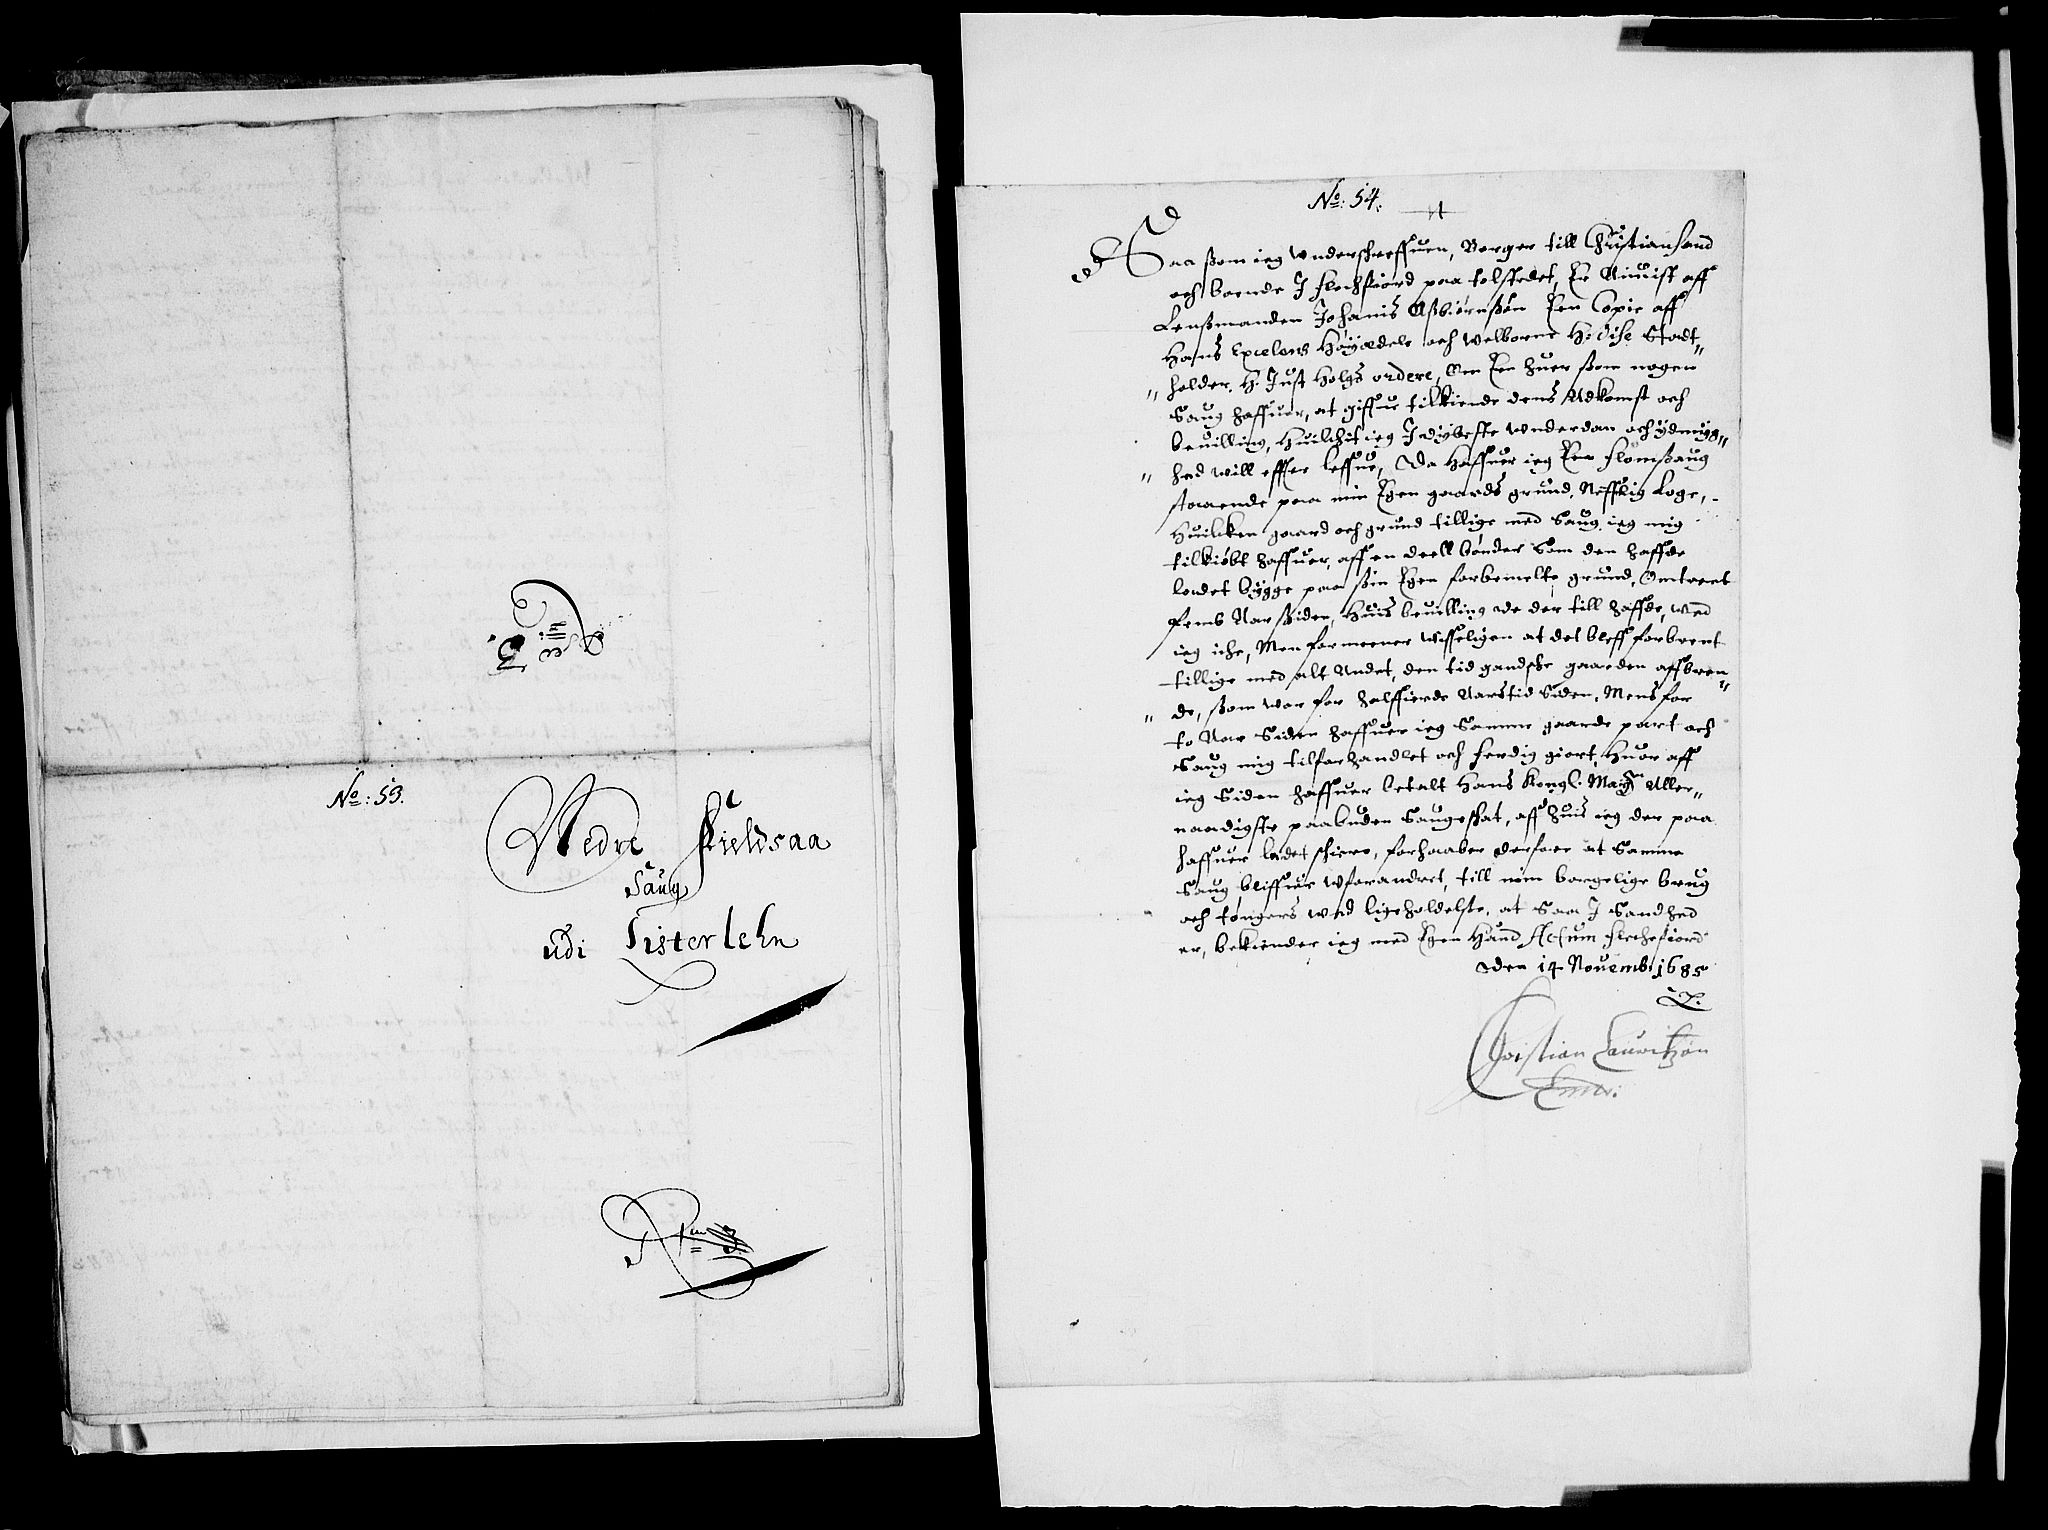 No: 53.
Nedre Kieldsaa
Saug
udi Listerlehn
No: 54.
Saa som ieg underschreffuen, Borger till Christiansand
och boende J flechfiord paa tolstedet, Er Anuist aff
Lensmanden Johanis Asbiørnsøn Een Copie aff
Hans Excelens Høyædele och welborne H: Vise Stadt„
„ holder H. Just Høigs ordere, Om Een huer som nogen
Saug haffuer, at giffue tilkiende dens Adkomst och
beuilling, Huilchit ieg J dybeste underdan och ydmyg„
„ hed will effter leffue, Da Haffuer ieg Een flomsaug
staaende paa min Egen gaards grund, Neffnlig Loge,
Huilcken gaard och grund tillige med Saug ieg mig
tilkiøbt haffuer, aff en deell bønder som den haffde
ladet bygge paa sin Egen forbemelte grund, Omtrent
fems Aar siden, Huis beuilling de der till haffde, wed
ieg iche, Men formeener wisseligen at det bleff forbrent
tillige med alt Andet, den tid gandsche gaarden affbren„
„ de, som war for halffierde Aarstid siden, Mens for
to Aar Siden haffuer ieg Samme gaarde part och
Saug mig tilforhandlet och ferdig giort, Huor aff
ieg Siden haffuer betalt Hans Kongl. Mayts Aller„
naadigste paabuden Saugeskat, aff huis ieg der paa
haffuer ladet schiere, forhaaber derfore at Samme
Saug bliffuer uforandret, till min borgelige brug
och tøngers wed ligeholdelse, at Saa J Sandhed
er, bekiender ieg med Egen Haand Actum flechefiord
Den 14 Nouemb: 1685
Christian Lauritzøn